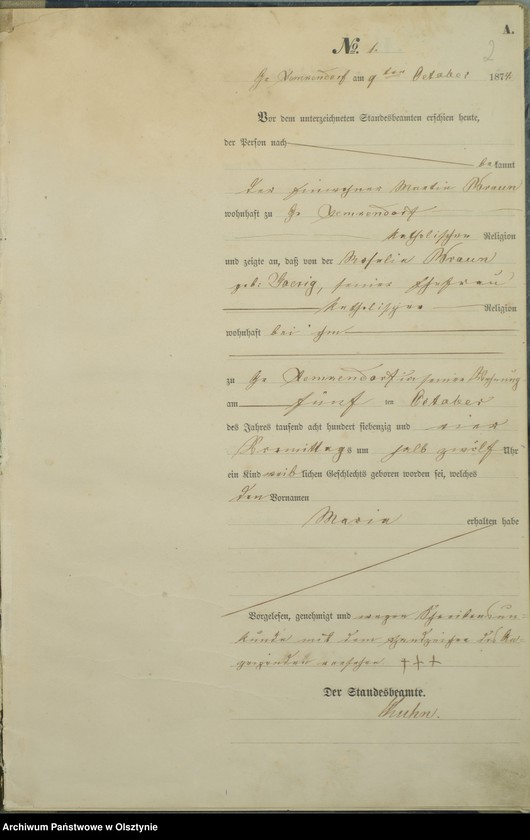 A.
No. 1.
2
Gr. Lemkendorf am 9ten October 1874.
Vor dem unterzeichneten Standesbeamten erschien heute,
der Person nach
bekannt
der Einwohner Martin Braun
wohnhaft zu Gr. Lemkendorf
katholischer Religion
und zeigte an, daß von der Rosalia Braun
geb. Goerig, seiner Ehefrau
katholischer Religion
wohnhaft bei ihm
zu Gr. Lemkendorf in seiner Wohnung
am fünf ten October
des Jahres tausend acht hundert siebenzig und vier
Vormittags um halb zwölf Uhr
ein Kind weiblichen Geschlechts geboren worden sei, welches
den Vornamen
Maria erhalten habe
Vorgelesen, genehmigt und wegen Schreibensun-
kunde mit dem Handzeichen des An-
zeigenden versehen +++
Der Standesbeamte.
Kuhn.
Archiwum Państwowe w Olsztynie